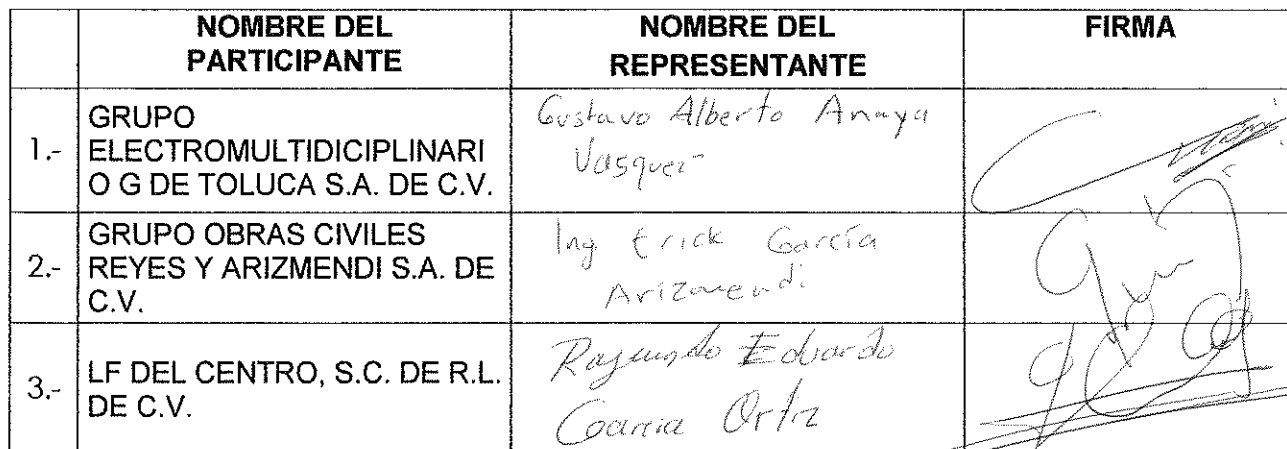 NOMBRE DEL PARTICIPANTE
NOMBRE DEL REPRESENTANTE
FIRMA
1.-
GRUPO
ELECTROMULTIDICIPLINARI
O G DE TOLUCA S.A. DE C.V.
Gustavo Alberto Anaya
Vasquez
2.-
GRUPO OBRAS CIVILES
REYES Y ARIZMENDI S.A. DE
C.V.
Ing Erick García
Arizmendi
3.-
LF DEL CENTRO, S.C. DE R.L.
DE C.V.
Eduardo
Garcia Ortiz